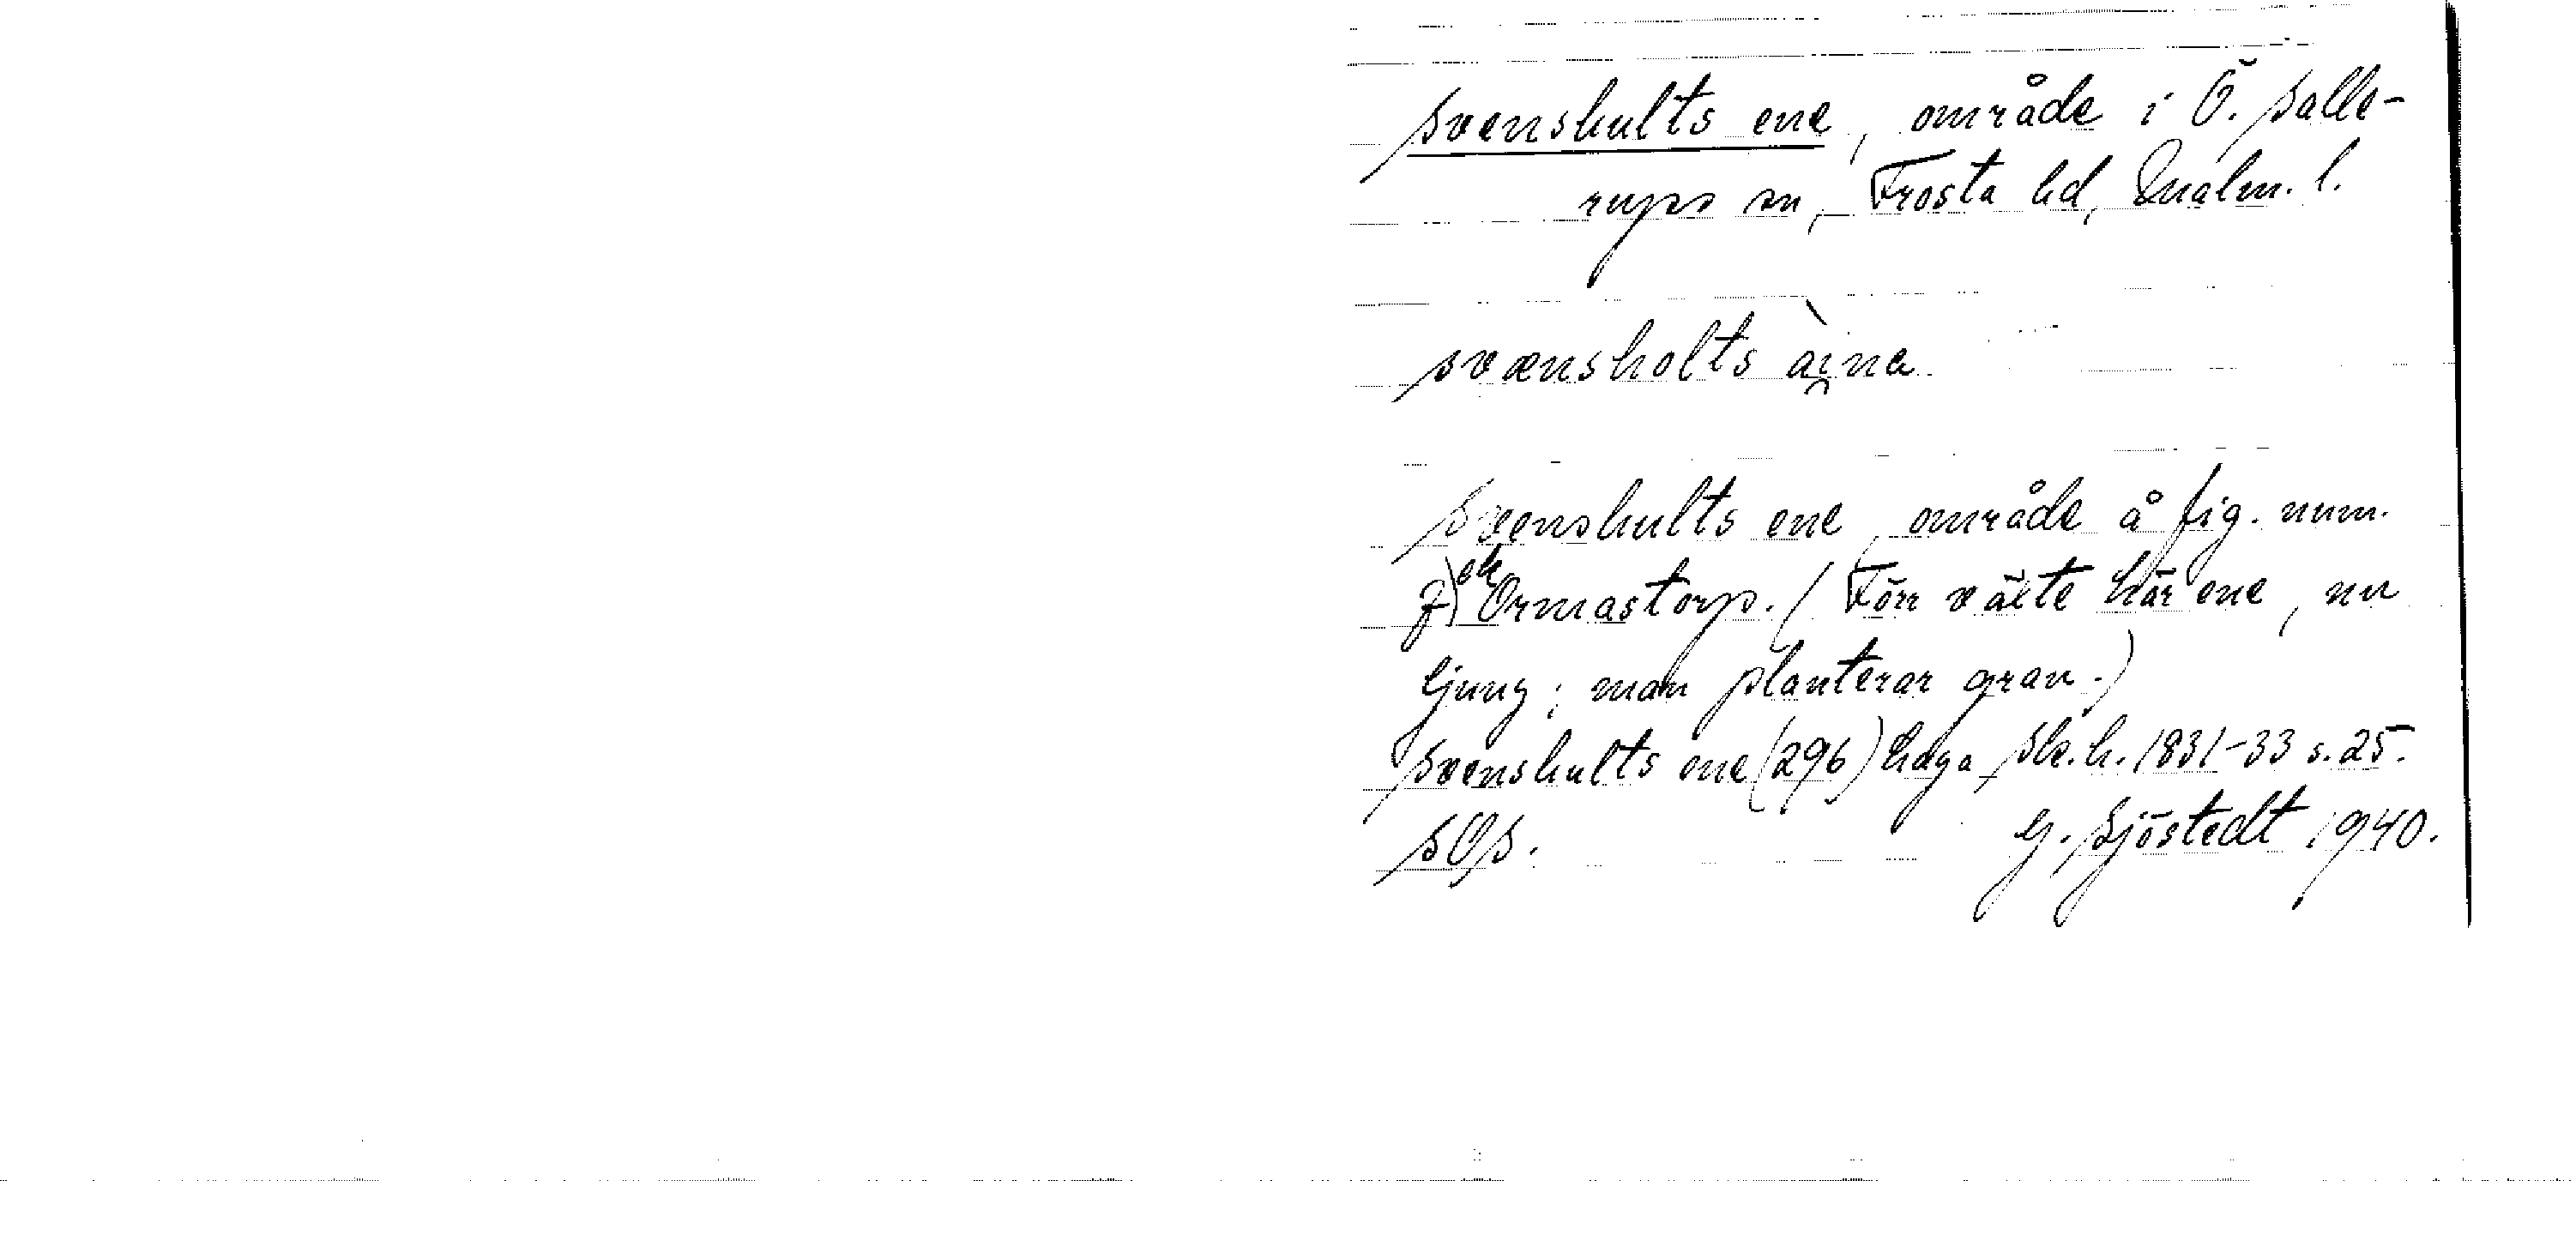 Svenshults ene, område i Ö. Salle-
rups sn, Frosta hd, Malm. l.
svænsholts àine
Svenshults ene, område å fig. num.
Ormastorp. (Förr växte här ene, nu
ljung; man planterar gran.)
Svenshults ene (296) haga, Sk. h. 1831-33 s. 25.
SOS. G. Sjöstedt 1940.